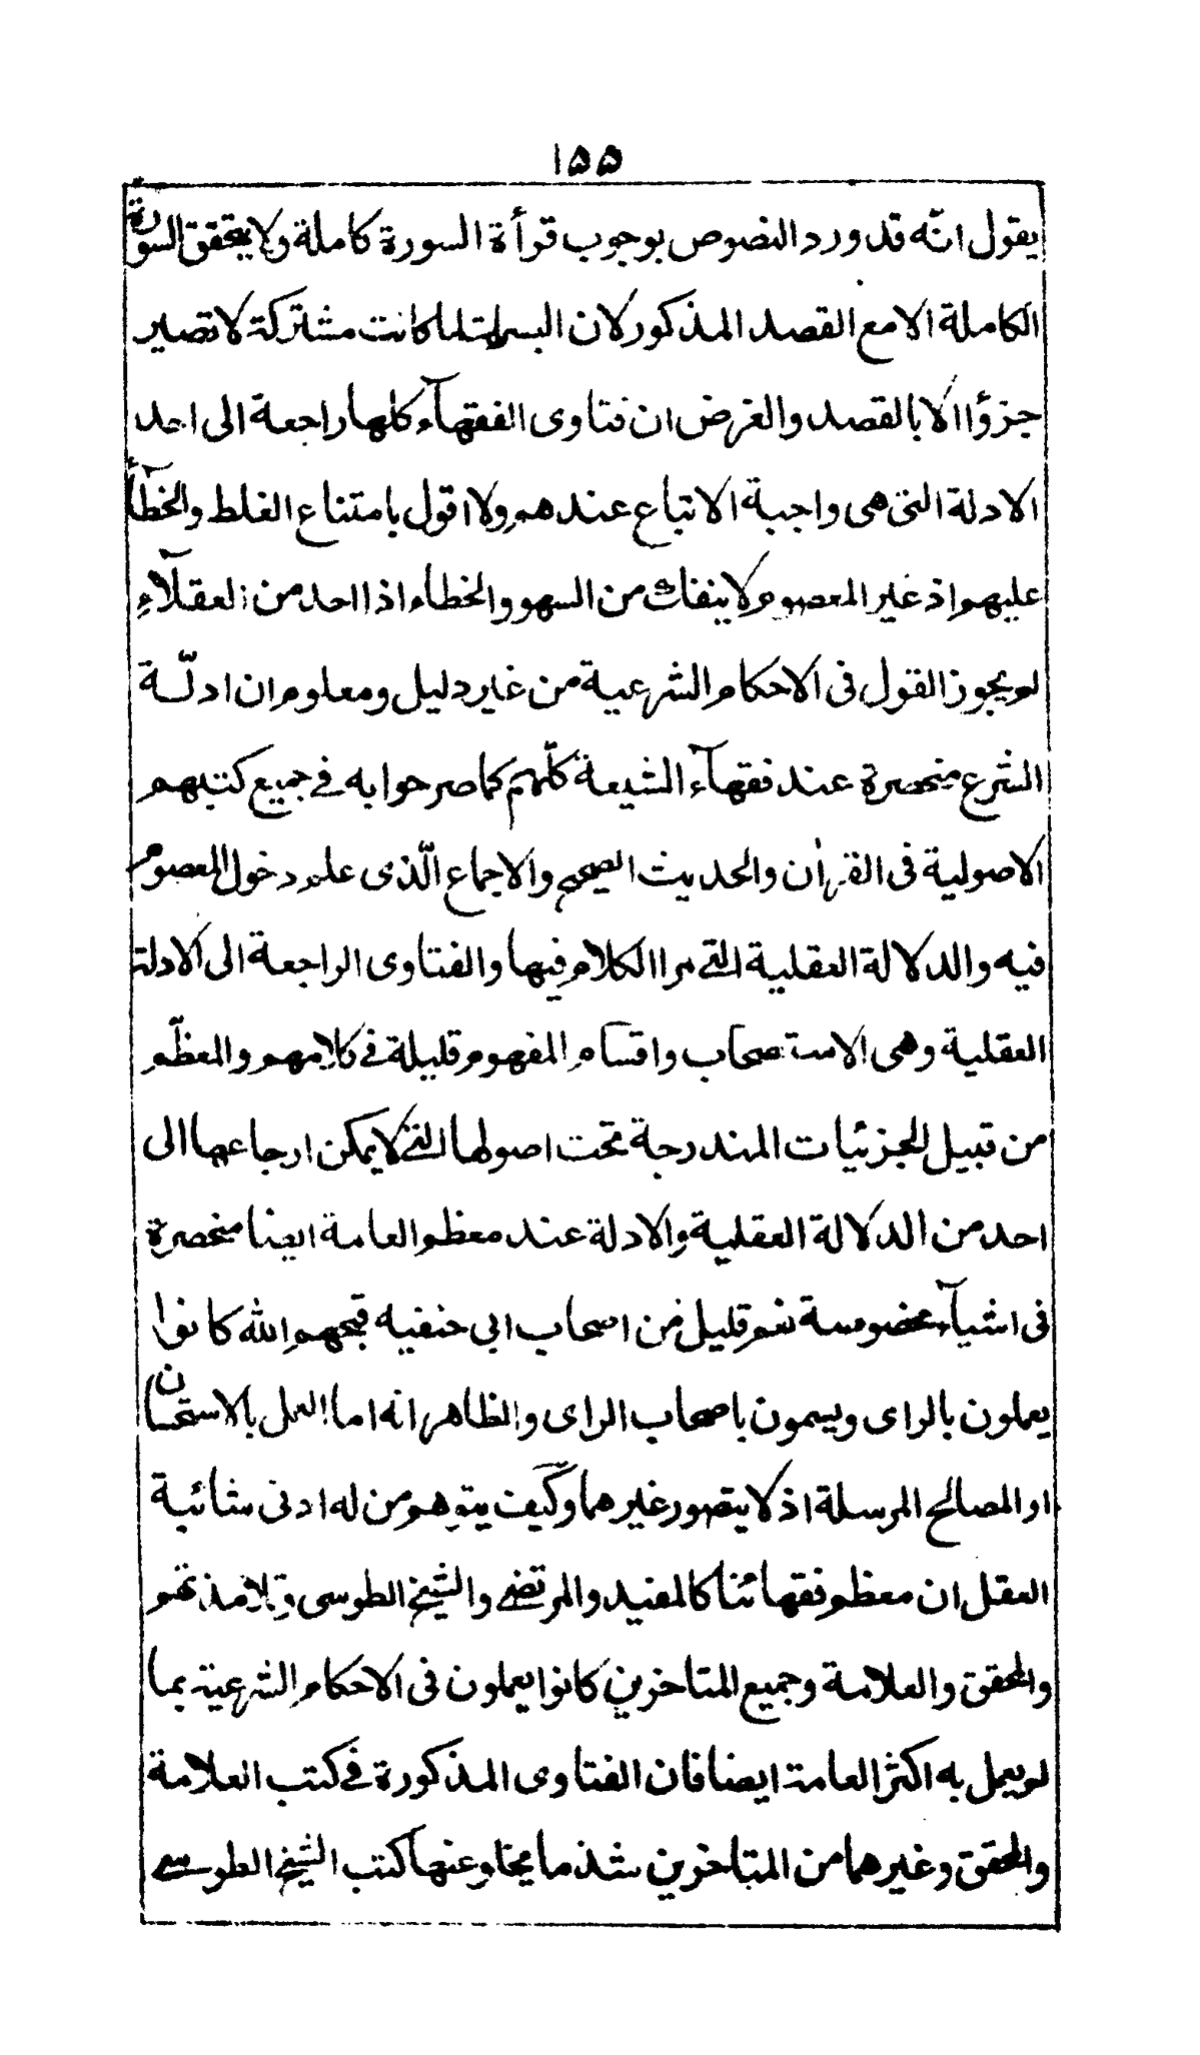 ۱۵۵
يقول انّه قد ورد النصوص بوجوب قرأة السورة كاملة ولا يتحقق السورة
الكاملة الا مع القصد المذكور لان البسملة لما كانت مشتركة لا تصير
جزؤا الا بالقصد والغرض ان فتاوى الفقهآء كلها راجعة الى احد
الادلة التى هى واجبة الاتباع عندهم ولا اقول بامتناع الغلط والخطأ
عليهم اذ غير المعصوم لا ينفك من السهو والخطاء اذا احد من العقلآء
لم يجوز القول فى الاحكام الشرعية من غير دليل ومعلوم ان ادلّة
الشرع منحصرة عند فقهآء الشيعة كلّهم كما صرحوا به فى جميع كتبهم
الاصولية فى القرأن والحديث الصحيح والاجماع الّذى علم دخول المعصوم
فيه والدلالة العقلية التى مر الكلام فيها والفتاوى الراجعة الى الادلة
العقلية وهى الاستصحاب واقسام المفهوم قليلة فى كلامهم والمعظّم
من قبيل الجزئيات المندرجة تحت اصولها التى لا يمكن ارجاعها الى
احد من الدلالة العقلية والادلة عند معظم العامة ايضا منحصرة
فى اشيآء مخصوصة نعم قليل من اصحاب ابى حنفيه قبحهم الله كانوا
يعملون بالراى ويسمون باصحاب الراى والظاهر انه اما العمل بالاستحسان
او المصالح المرسلة اذ لا يتصور غيرهما وكيف يتوهم من له ادنى شائبة
العقل ان معظم فقهائنا كالمفيد والمرتضى والشيخ الطوسى وتلامذتهم
والمحقق والعلامة وجميع المتاخرين كانوا يعملون فى الاحكام الشرعية بما
لم يعمل به اكثر العامة ايضا فان الفتاوى المذكورة فى كتب العلامة
والمحقق وغيرهما من المتاخرين شذ ما يخلو عنها كتب الشيخ الطوسى